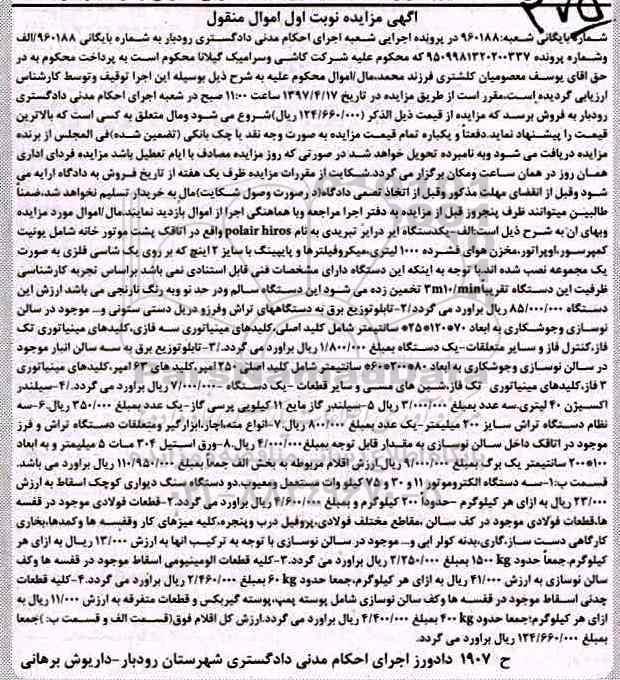 آگهی مزایده نوبت اول اموال منقول
شماره بایگانی شعبه: ۹۶۰۱۸۸ در پرونده اجرایی شعبه اجرای احکام مدنی دادگستری رودبار به شماره بایگانی ۹۶۰۱۸۸/الف
وشماره پرونده ۹۵۰۹۹۸۱۳۲۰۲۰۰۳۳۷ که محکوم علیه شرکت کاشی وسرامیک گیلانا محکوم است به پرداخت محکوم به در
حق اقای یوسف معصومیان کلشتری فرزند محمد،مال/اموال محکوم علیه به شرح ذیل بوسیله این اجرا توقیف وتوسط کارشناس
ارزیابی گردیده است،مقرر است از طریق مزایده در تاریخ ۱۳۹۷/۴/۱۷ ساعت ۱۱:۰۰ صبح در شعبه اجرای احکام مدنی دادگستری
رودبار به فروش برسد که مزایده از قیمت ذیل الذکر (۱۲۴/۶۶۰/۰۰۰ ریال)شروع می شود ومال متعلق به کسی است که بالاترین
قیمت را پیشنهاد نماید.دفعتاً و یکباره تمام قیمت مزایده به صورت وجه نقد یا چک بانکی (تضمین شده)فی المجلس از برنده
مزایده دریافت می شود وبه نامبرده تحویل خواهد شد در صورتی که روز مزایده مصادف با ایام تعطیل باشد مزایده فردای اداری
همان روز در همان ساعت ومکان برگزار می گردد.شکایت از مقررات مزایده ظرف یک هفته از تاریخ فروش به دادگاه ارایه می
شود وقبل از انقضای مهلت مذکور وقبل از اتخاذ تصمی دادگاه(در رصورت وصول شکایت)مال به خریدار تسلیم نخواهد شد،ضمناً
طالبین میتوانند ظرف پنجروز قبل از مزایده به دفتر اجرا مراجعه وبا هماهنگی اجرا از اموال بازدید نمایند.مال/اموال مورد مزایده
وبهای ان به شرح ذیل است:الف-یکدستگاه ایر درایر تبریدی به نام polair hiros واقع در اتاقک پشت موتور خانه شامل یونیت
کمپرسور،اوپراتور،مخزن هوای فشرده ۱۰۰۰ لیتری،میکروفیلترها و پایپینگ با سایز ۲ اینچ که بر روی یک شاسی فلزی به صورت
یک مجموعه نصب شده اند.با توجه به اینکه این دستگاه دارای مشخصات فنی قابل استنادی نمی باشد براساس تجربه کارشناسی
ظرفیت این دستگاه تقریبا۳m۱۰/min تخمین زده می شود این دستگاه سالم ودر حد نو وبه رنگ نارنجی می باشد ارزش این
دستگاه ۸۵/۰۰۰/۰۰۰ ریال براورد می گردد/۲-تابلوتوزیع برق به دستگاههای تراش وفرزو دریل دستی ستونی و... موجود در سالن
نوسازی وجوشکاری به ابعاد ۷۰*۱۲۰*۲۵ سانتیمتر شامل کلید اصلی،کلیدهای مینیاتوری سه فازی،کلیدهای مینیاتوری تک
فاز،کنترل فاز و سایر متعلقات-یک دستگاه بمبلغ ۱/۸۰۰/۰۰۰ ریال براورد می گردد./۳-تابلوتوزیع برق به سه سالن انبار موجود
در سالن نوسازی وجوشکاری به ابعاد ۸۰*۲۰۰*۶۰ سانتیمتر شامل کلید اصلی ۲۵۰ امپر،کلید های ۶۳ امپر،کلیدهای مینیاتوری
۳ فاز،کلیدهای مینیاتوری تک فاز،شین های مسی و سایر قطعات -یک دستگاه -۷/۰۰۰/۰۰۰ ریال براورد می گردد ./۴-سیلندر
اکسیژن ۴۰ لیتری.سه عدد بمبلغ ۳/۰۰۰/۰۰۰ ریال ۵-سیلندر گاز مایع ۱۱ کیلویی پرسی گاز-یک عدد بمبلغ ۳۵۰/۰۰۰ ریال.۶-سه
نظام دستگاه تراش سایز ۲۰۰ میلیمتر-یک عدد بمبلغ ۸۰۰/۰۰۰ ریال.۷-انواع مته،اچار،ابزارگیر ومتعلقات دستگاه تراش و فرز
موجود در اتاقک داخل سالن نوسازی به مقدار قابل توجه بمبلغ ۴/۰۰۰/۰۰۰ ریال.۸-ورق استیل ۳۰۴ مات ۵ میلیمتر و به ابعاد
۱۰۰*۲۰۰ سانتیمتر یک برگ بمبلغ ۹/۰۰۰/۰۰۰ ریال.ارزش اقلام مربوطه به بخش الف جمعا بمبلغ ۱۱۰/۹۵۰/۰۰۰ ریال براورد می باشد.
قسمت ب:۱-سه دستگاه الکتروموتور ۱۱ و ۳۰ و ۷۵ کیلو وات مستعمل ومعیوب.دو دستگاه سنگ دیواری کوچک اسقاط به ارزش
۲۳/۰۰۰ ریال به ازای هر کیلوگرم -حدوداً ۲۰۰ کیلوگرم و بمبلغ ۴/۶۰۰/۰۰۰ ریال براورد می گردد.۲-قطعات فولادی موجود در قفسه
ها،قطعات فولادی موجود در کف سالن ،مقاطع مختلف فولادی،پروفیل درب وپنجره،کلیه میزهای کار وقفسه ها وکمدها،بخاری
کارگاهی دست ساز،گاری،بدنه کولر ابی و... موجود در سالن نوسازی با توجه به ترکیب انها به ارزش ۱۳/۰۰۰ ریال به ازای هر
کیلوگرم.جمعاً حدود ۱۵۰۰ kg بمبلغ ۲/۲۵۰/۰۰۰ ریال براورد می گردد.۳-کلیه قطعات الومینیومی اسقاط موجود در قفسه ها وکف
سالن نوسازی به ارزش ۴۱/۰۰۰ ریال به ازای هر کیلوگرم،جمعا حدود ۶۰ kg بمبلغ ۲/۴۶۰/۰۰۰ ریال براورد می گردد.۴-کلیه قطعات
چدنی اسقاط موجود در قفسه ها وکف سالن نوسازی شامل پوسته پمپ،پوسته گیربکس و قطعات متفرقه به ارزش ۱۱/۰۰۰ ریال به
ازای هر کیلوگرم؛جمعا حدود ۴۰۰ kg بمبلغ ۴/۴۰۰/۰۰۰ ریال براورد می گردد.ارزش کل اقلام فوق(قسمت الف و قسمت ب: )جمعا
بمبلغ ۱۲۴/۶۶۰/۰۰۰ ریال براورد می گردد.
ح ۱۹۰۷ دادورز اجرای احکام مدنی دادگستری شهرستان رودبار-داریوش برهانی